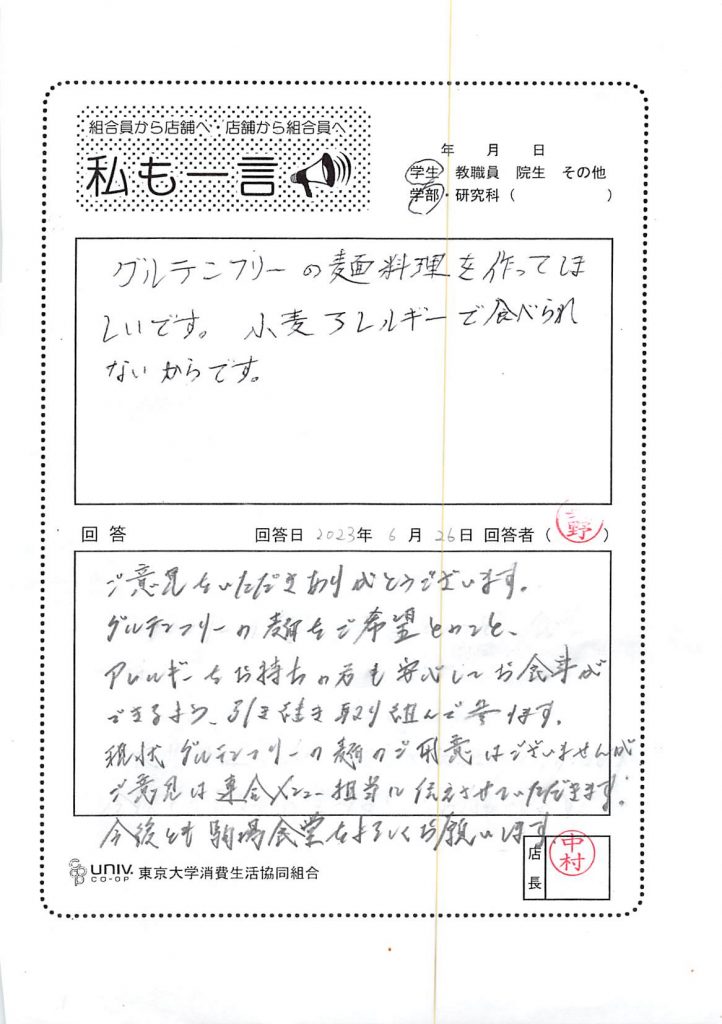 組合員から店舗へ・店舗から組合員へ
私も一言
年 月 日
学生 教職員 院生 その他
学部・研究科（ ）
グルテンフリーの麺料理を作ってほ
しいです。 小麦アレルギーで食べられ
ないからです。
回答 回答日 2023年 6月 26日 回答者（ 野 ）
ご意見をいただきありがとうございます。
グルテンフリーの麺をご希望とのこと、
アレルギーをお持ちの方も安心してお食事が
できるよう、引き続き取り組んで参ります。
現状グルテンフリーの麺のご用意はございませんが
ご意見は連合メニュー担当に伝えさせていただきます。
今後とも駒場食堂をよろしくお願いします。
店長 中村
UNIV. CO-OP 東京大学消費生活協同組合